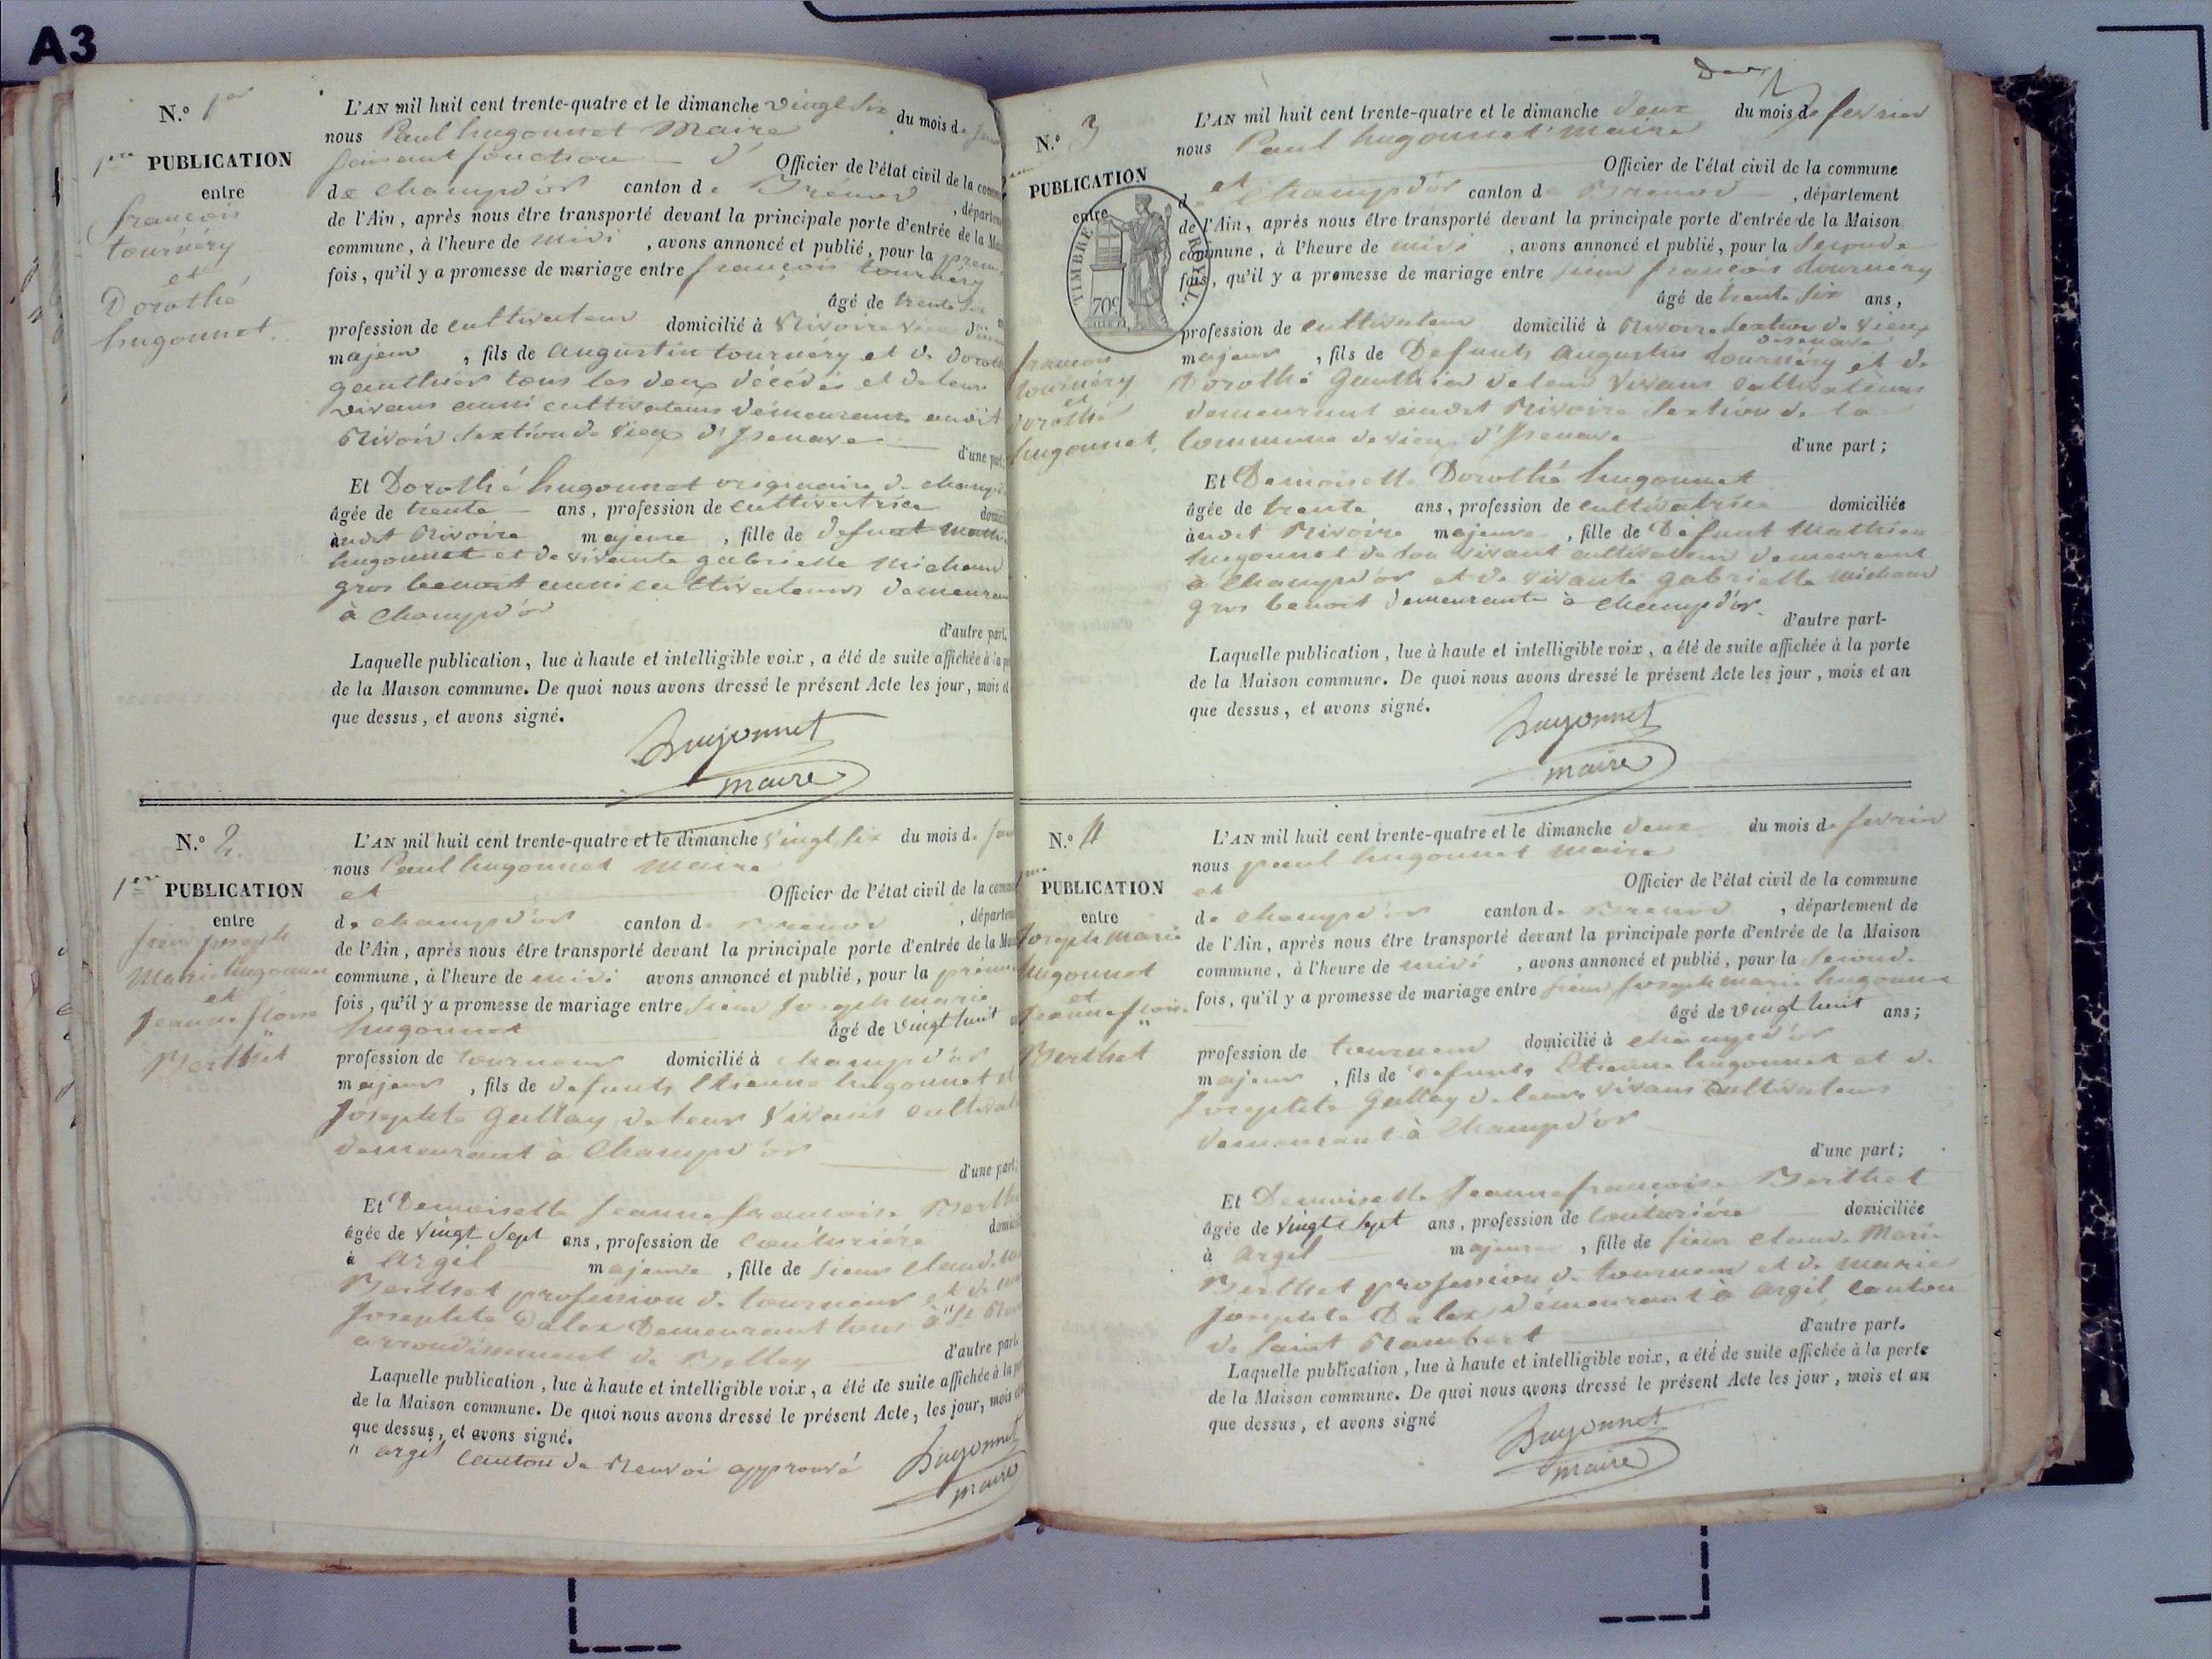 A3
N.º 1er
1ère PUBLICATION
entre
françois
tournéry
et
Dorothé
hugonnet.
L'AN mil huit cent trente-quatre et le dimanche vingt six du mois de
nous Paul hugonnet Maire
faisant fonction d' Officier de l'état civil de la
de Champd'or canton de Brenod , départem
de l'Ain, après nous être transporté devant la principale porte d'entrée de la
commune, à l'heure de midi , avons annoncé et publié, pour la prem
fois, qu'il y a promesse de mariage entre françois tournéry
âgé de trente six
profession de cultivateur domicilié à Rivoire
majeur , fils de augustin tournéry et de
gauthier tous les deux décédés et de leur
vivans aussi cultivateurs démeurans audit
Rivoir section de vieux d'Isenave
d'une part;
Et Dorothé hugonnet originaire de champ
âgée de trente ans, profession de cultivatrice
audit Rivoire majeure , fille de defunt
hugonnet et de vivante gabrielle Michaud
gros benoit aussi cultivateurs demeuran
à Champd'or
d'autre part.
Laquelle publication, lue à haute et intelligible voix, a été de suite affichée à la
de la Maison commune. De quoi nous avons dressé le présent Acte les jour, mois et
que dessus, et avons signé.
hugonnet
maire
N.º 2.
1ère PUBLICATION
entre
sieur joseph
Marie hugonnet
et
Jeanne
Berthet
L'AN mil huit cent trente-quatre et le dimanche vingt six du mois de
nous Paul hugonnet Maire
et Officier de l'état civil de la
de champd'or canton de Brenod , départem
de l'Ain, après nous être transporté devant la principale porte d'entrée de la
commune, à l'heure de midi avons annoncé et publié, pour la
fois, qu'il y a promesse de mariage entre sieur Joseph marie
hugonnet âgé de vingt huit
profession de tourneur domicilié à champd'or
majeur , fils de defunts Etienne hugonnet et
Josephte gallay de leur vivans
demeurant à Champd'or
d'une part;
Et Demoiselle Jeanne francoise
âgée de vingt sept ans, profession de couturière
à Argil majeure , fille de sieur Claude
Berthet profession de tourneur et de
Josephte Dalex Demeurant tous à
arrondissement de Belley
d'autre part.
Laquelle publication, lue à haute et intelligible voix, a été de suite affichée à la
de la Maison commune. De quoi nous avons dressé le présent Acte, les jour, mois
que dessus, et avons signé.
" argil canton de Renvoi approuvé
hugonnet
maire
N.º 3
PUBLICATION
entre
TIMBRE ROYAL.
70c
francois
tournéry
et
Dorothé
hugonnet.
L'AN mil huit cent trente-quatre et le dimanche deux du mois de fevrier
nous Paul hugonnet maire
et Officier de l'état civil de la commune
de Champd'or canton de Brenod , département
de l'Ain, après nous être transporté devant la principale porte d'entrée de la Maison
commune, à l'heure de midi , avons annoncé et publié, pour la seconde
fois, qu'il y a promesse de mariage entre sieur francois tournéry
âgé de trente six ans,
profession de cultivateur domicilié à Rivoire section de vieux
majeur , fils de Defunts augustin tournéry et de
Dorothé Gauthier de leur vivans cultivateurs
demeurant audit Rivoire section de la
commune de vieux d'Isenave d'une part;
Et Demoiselle Dorothé hugonnet
âgée de trente ans, profession de cultivatrice domiciliée
audit Rivoire majeure , fille de Défunt Mathieu
hugonnet de son vivant cultivateur demeurant
à Champd'or et de vivante gabrielle Michaud
gros benoit demeurante à Champd'or.
d'autre part-
Laquelle publication, lue à haute et intelligible voix, a été de suite affichée à la porte
de la Maison commune. De quoi nous avons dressé le présent Acte les jour, mois et an
que dessus, et avons signé.
hugonnet
maire
N.º 4
PUBLICATION
entre
Joseph marie
hugonnet
et
Berthet
L'AN mil huit cent trente-quatre et le dimanche deux du mois de fevrier
nous paul hugonnet maire
et Officier de l'état civil de la commune
de Champd'or canton de Brenod , département de
de l'Ain, après nous être transporté devant la principale porte d'entrée de la Maison
commune, à l'heure de midi , avons annoncé et publié, pour la seconde
fois, qu'il y a promesse de mariage entre sieur joseph marie hugonnet
âgé de vingt huit ans;
profession de tourneur domicilié à champd'or
majeur , fils de defunts Etienne hugonnet et de
Josephte Gallay de leurs vivans cultivateurs
demeurant à Champd'or
d'une part;
Et Demoiselle Jeanne francoise Berthet
âgée de vingt sept ans, profession de couturière domiciliée
à argil majeure , fille de sieur claude Marie
Berthet profession de tourneur et de marie
Josephte Dalex démeurant à argil canton
de Saint Rambert d'autre part.
Laquelle publication, lue à haute et intelligible voix, a été de suite affichée à la porte
de la Maison commune. De quoi nous avons dressé le présent Acte les jour, mois et an
que dessus, et avons signé
hugonnet
maire